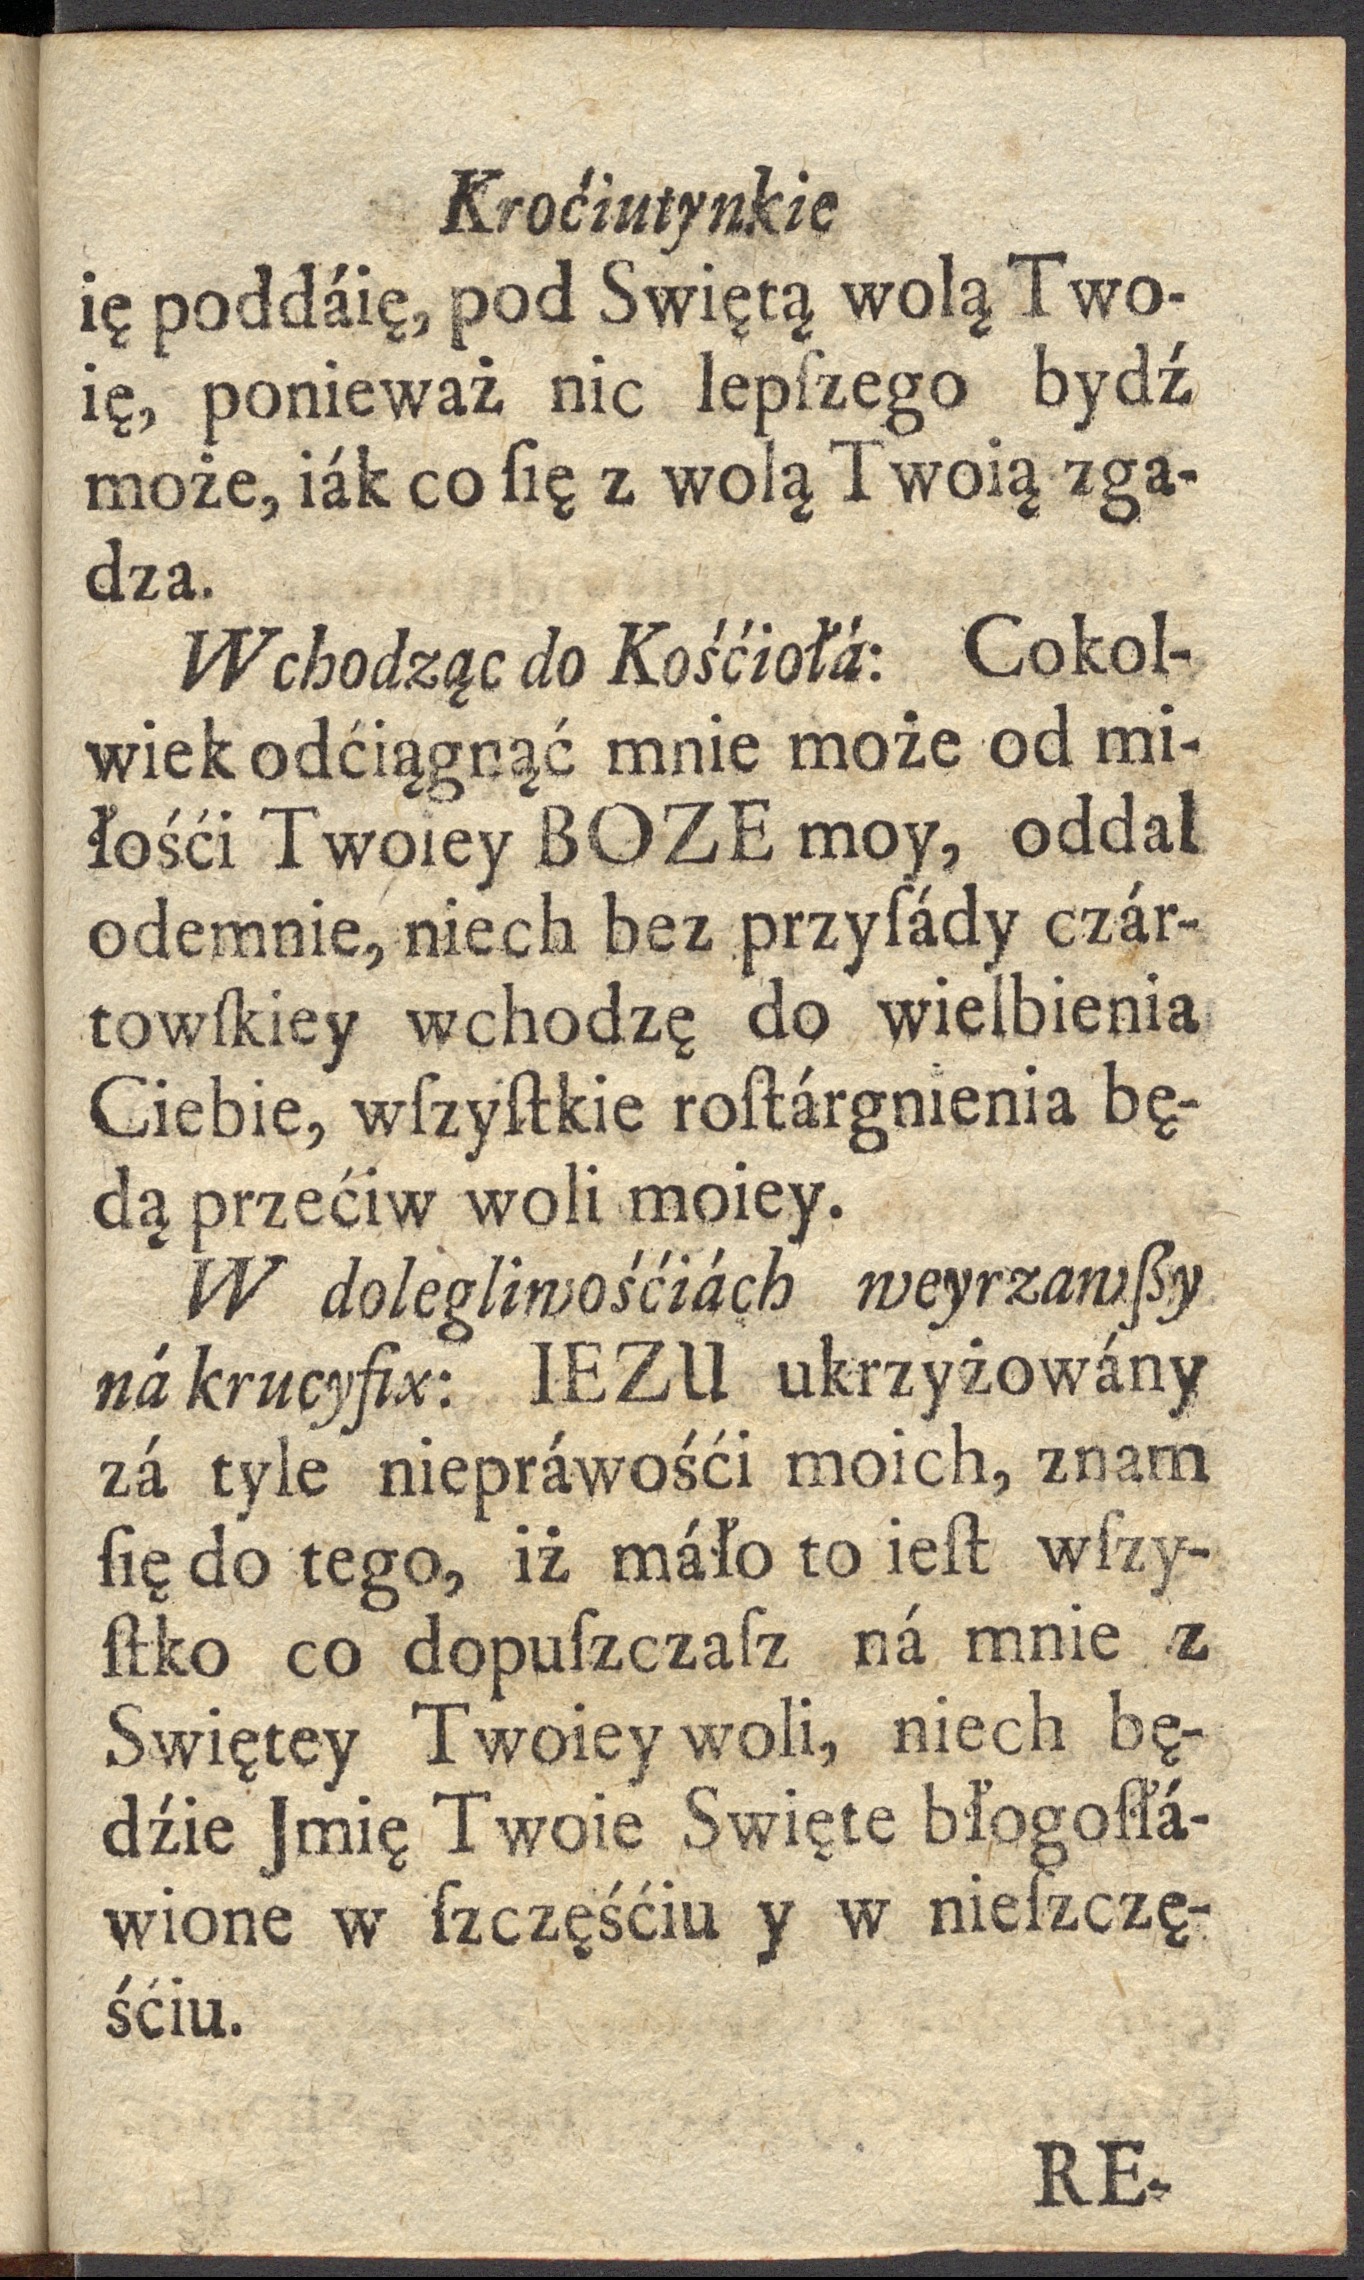 Kroćiutynkie
ię poddáię, pod Swiętą wolą Two-
ię, ponieważ nic lepſzego bydź
może, iák co ſię z wolą Twoią zga-
dza.
Wchodząc do Kośćiołá: Cokol-
wiek odćiągnąć mnie może od mi-
łośći Twoiey BOZE moy, oddal
odemnie, niech bez przyſády czár-
towſkiey wchodzę do wielbienia
Ciebie, wſzyſtkie roſtárgnienia bę-
dą przećiw woli moiey.
W dolegliwośćiách weyrzawßy
ná krucyfix: IEZU ukrzyżowány
zá tyle niepráwośći moich, znam
ſię do tego, iż máło to ieſt wſzy-
ſtko co dopuſzczaſz ná mnie z
Swiętey Twoiey woli, niech bę-
dźie Jmię Twoie Swięte błogoſłá-
wione w ſzczęśćiu y w nieſzczę-
śćiu.
RE-